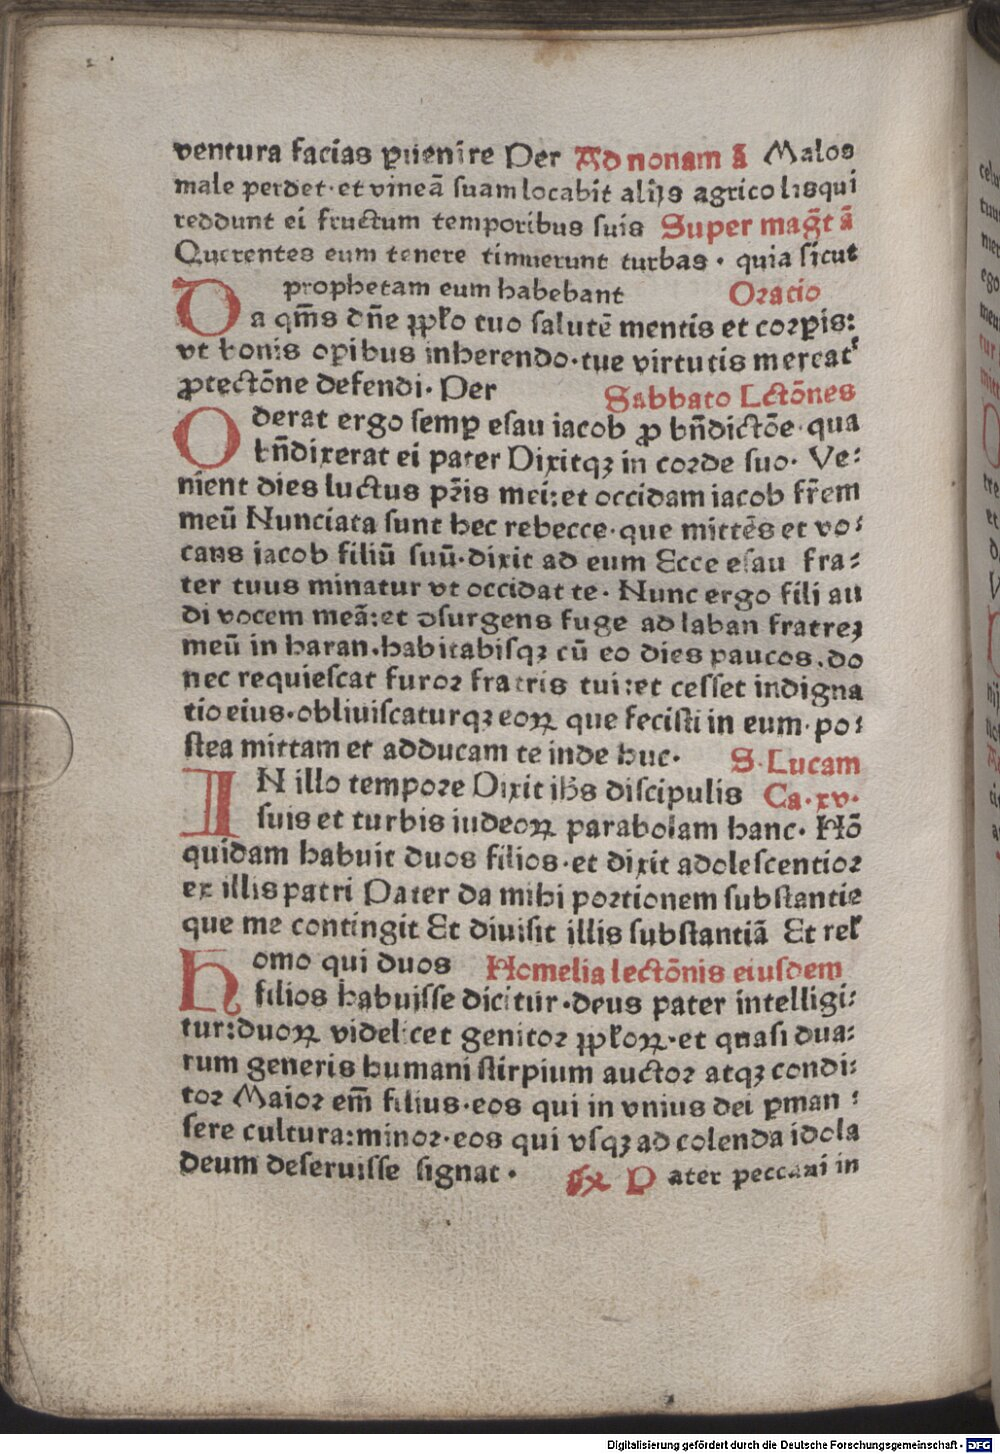 ventura facias ꝑuenire Per Ad nonam ā Malos
male perdet·et vineā suam locabit alijs agrico lis qui
reddunt ei fructum temporibus suis Super mag̃t ā
Querentes eum tenere timuerunt turbas · quia sicut
prophetam eum habebant Oratio
Da qm̄s dn̄e ꝓpl̄o tuo salutē mentis et corꝑis:
vt bonis oꝑibus inherendo·tue virtutis mercatᷣ
ꝓtectōne defendi· Per Sabbato Lctōnes
Oderat ergo semꝑ esau iacob ꝓ bn̄dictōe·qua
bn̄dixerat ei pater Dixitqꝫ in corde suo· Ve:
nient dies luctus pr̄is mei:et occidam iacob fr̄em
meū Nunciata sunt hec rebecce·que mittēs et vo:
cans iacob filiū suū·dixit ad eum Ecce esau fra:
ter tuus minatur vt occidat te· Nunc ergo fili au
di vocem meā:et ꝯsurgens fuge ad laban fratreꝫ
meū in haran·habitabisqꝫ cū eo dies paucos·do
nec requiescat furor fratris tui:et cesset indigna
tio eius·obliuiscaturqꝫ eoꝝ que fecisti in eum·po:
stea mittam et adducam te inde huc· S·Lucam
IN illo tempore Dixit ihs̄ discipulis Ca·xv·
suis et turbis iudeoꝝ parabolam hanc· Hō
quidam habuit duos filios·et dixit adolescentior
ex illis patri Pater da mihi portionem substantie
que me contingit Et diuisit illis substantiā Et rel̕
homo qui duos Homelia lectōnis eiusdem
filios habuisse dicitur·deus pater intelligi:
tur:duoꝝ videlicet genitor ꝓpl̄oꝝ·et quasi dua:
rum generis humani stirpium auctor atqꝫ condi:
tor Maior em̄ filius·eos qui in vnius dei ꝑman :
sere cultura:minor·eos qui vsqꝫ ad colenda idola
deum deseruisse signat· R̷x Pater peccaui in
Digitalisierung gefördert durch die Deutsche Forschungsgemeinschaft - DFG